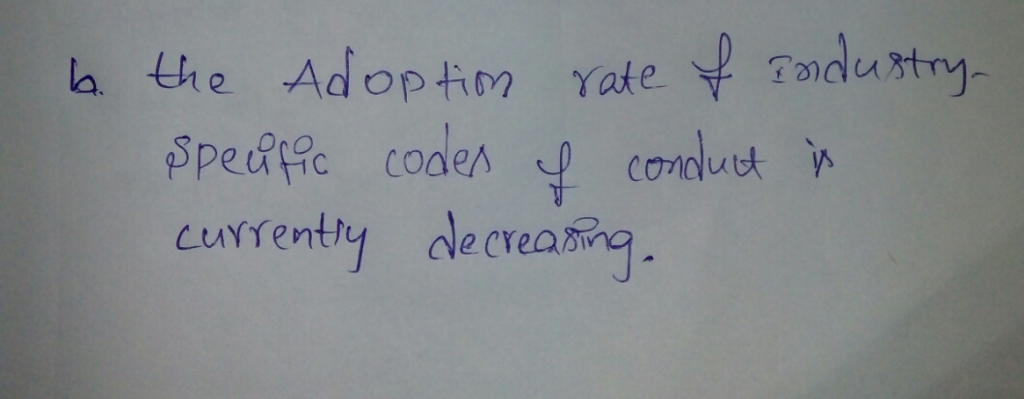 b. the Adoption rate of Industry-
specific codes of conduct is
currently decreasing.